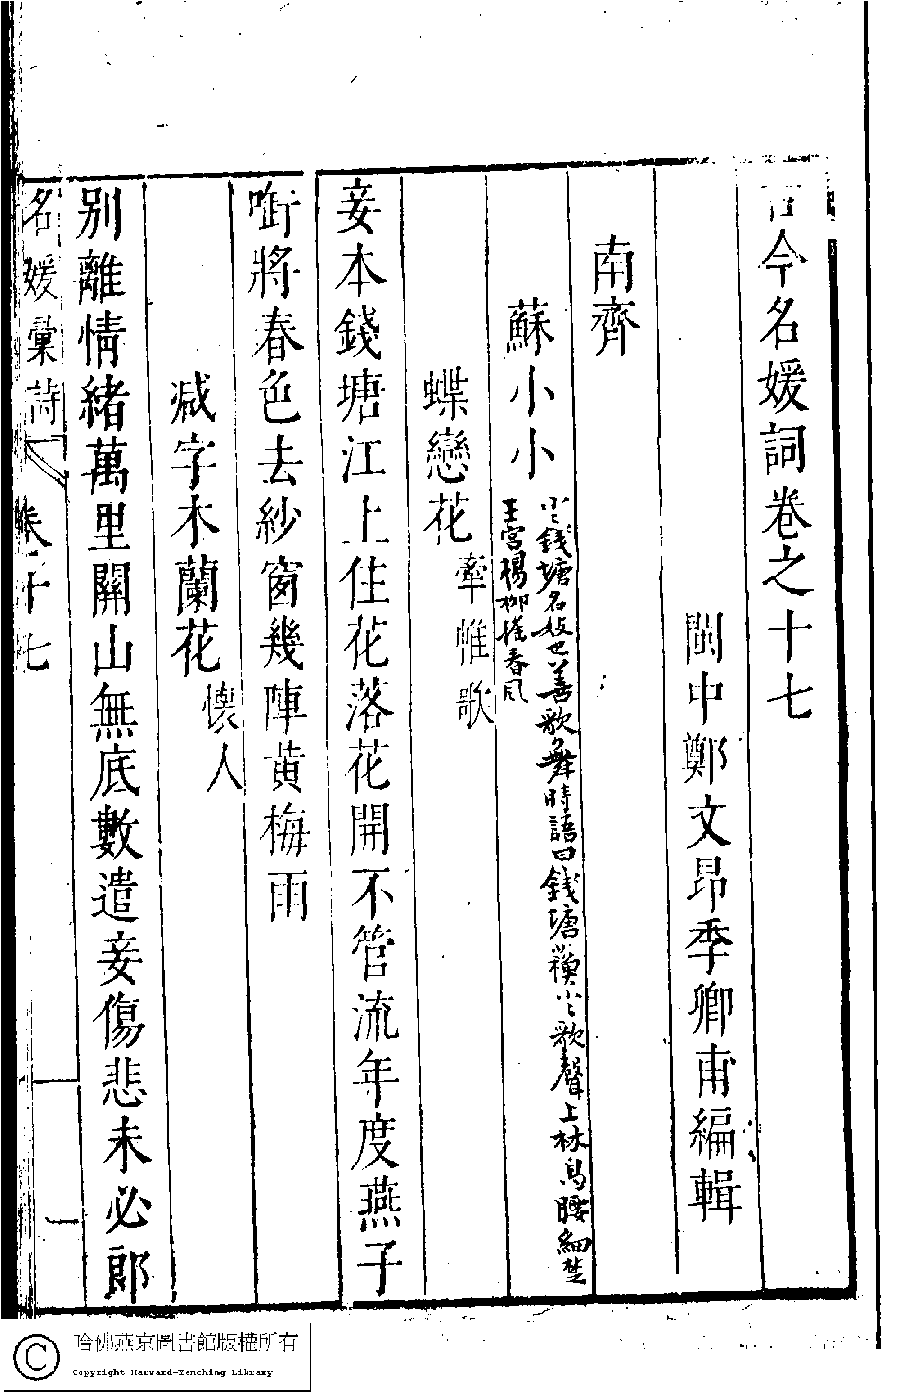 古今名媛詞卷之十七
閩中鄭文昂季卿甫編輯
南齊
蘇小小
小小錢塘名妓也善歌舞時語曰錢塘蘇小小歌聲上林鳥腰細楚
王宮楊柳搖春風
蝶戀花 牽帷歌
妾本錢塘江上住花落花開不管流年度燕子
啣將春色去紗窗幾陣黃梅雨
減字木蘭花 懷人
別離情緒萬里關山無底數遣妾傷悲未必郎
名媛彙詩 卷十七 一
哈佛燕京圖書館版權所有
Copyright Harvard-Yenching Library